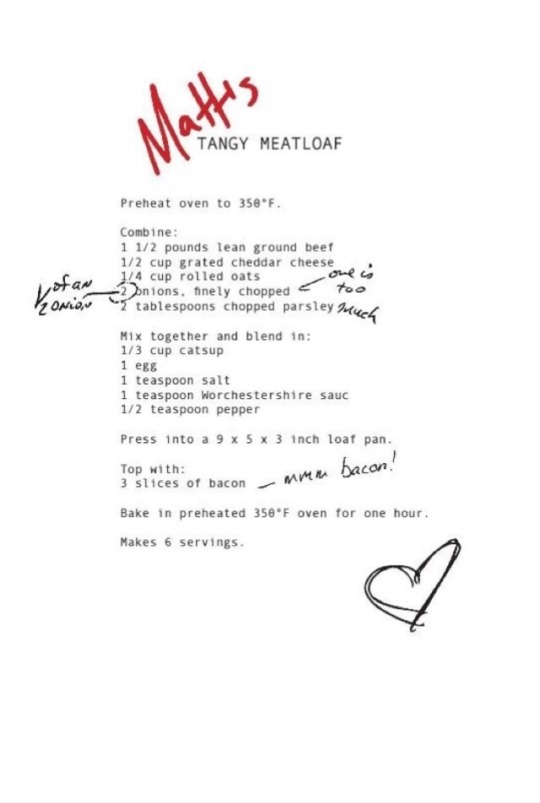 Matt's
TANGY MEATLOAF
Preheat oven to 350°F.
Combine:
1 1/2 pounds lean ground beef
1/2 cup grated cheddar cheese
1/4 cup rolled oats
2 onions, finely chopped
1/2 of an
onion
one is
too
much
2 tablespoons chopped parsley
Mix together and blend in:
1/3 cup catsup
1 egg
1 teaspoon salt
1 teaspoon Worchestershire sauc
1/2 teaspoon pepper
Press into a 9 x 5 x 3 inch loaf pan.
Top with:
3 slices of bacon
mmm bacon!
Bake in preheated 350°F oven for one hour.
Makes 6 servings.